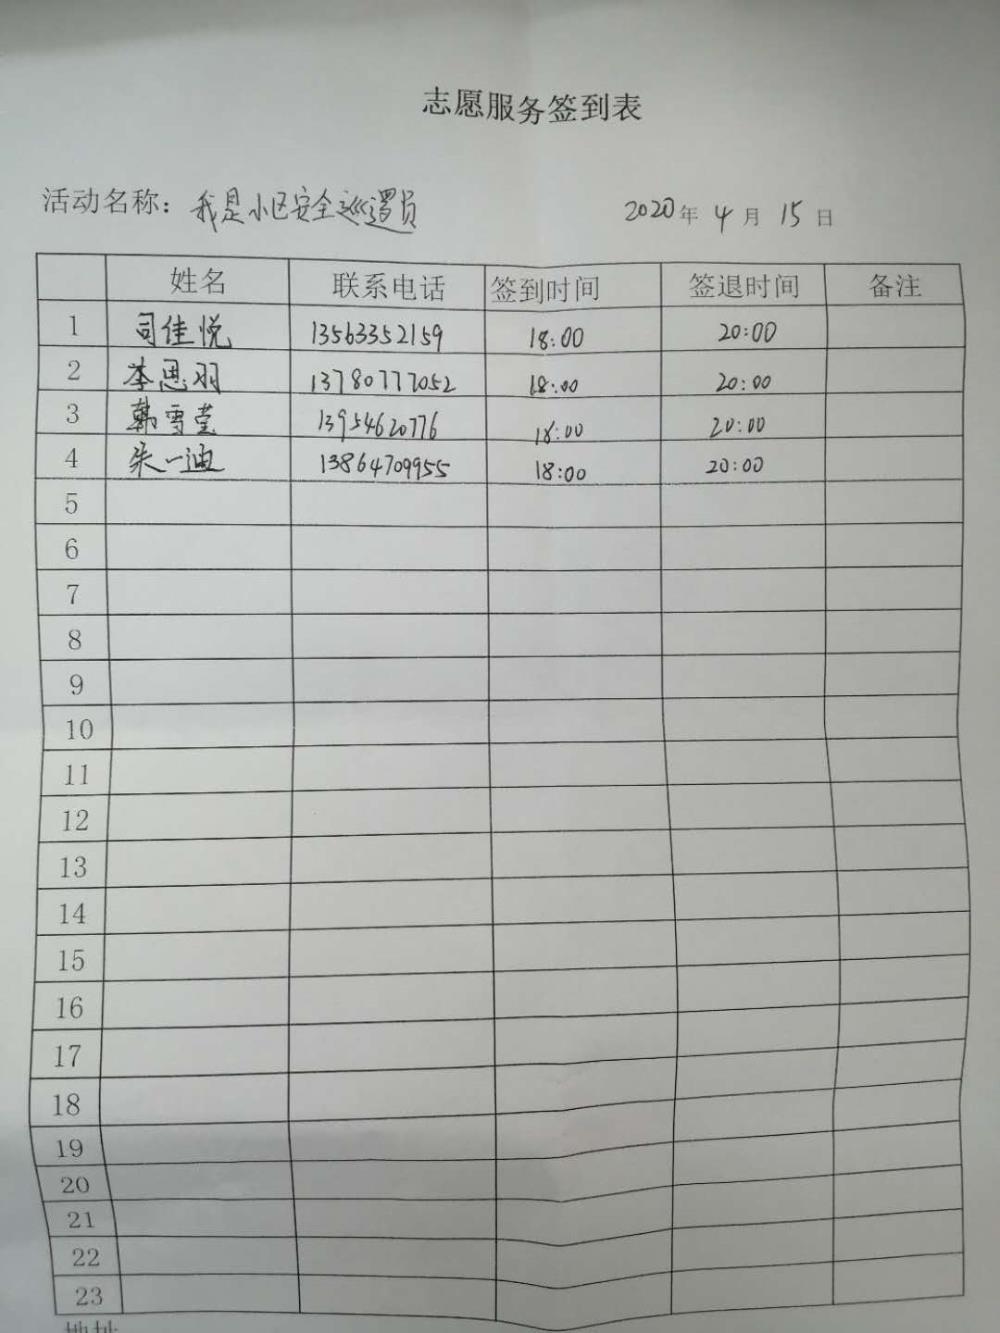 志愿服务签到表
活动名称：我是小区安全巡逻员 2020年 4月 15日
姓名 联系电话 签到时间 签退时间 备注
1 司佳悦 13563352159 18:00 20:00
2 李思羽 13780777052 18:00 20:00
3 韩雪莹 13954620776 18:00 20:00
4 朱一迪 13864709955 18:00 20:00
5
6
7
8
9
10
11
12
13
14
15
16
17
18
19
20
21
22
23
地址